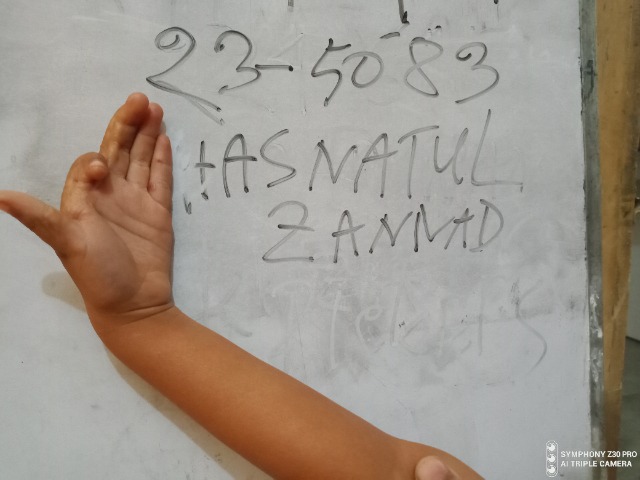 23-5083
HASNATUL
ZANNAD
SYMPHONY Z30 PRO
AI TRIPLE CAMERA